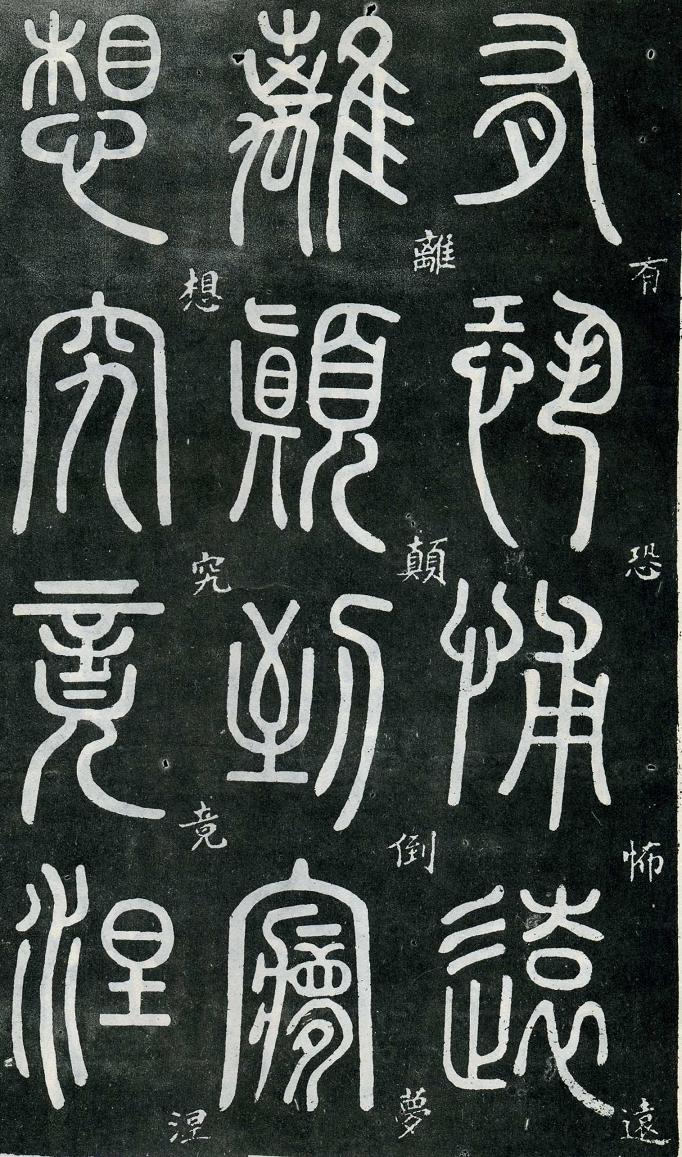 有恐怖遠
離顛倒夢
想究竟涅